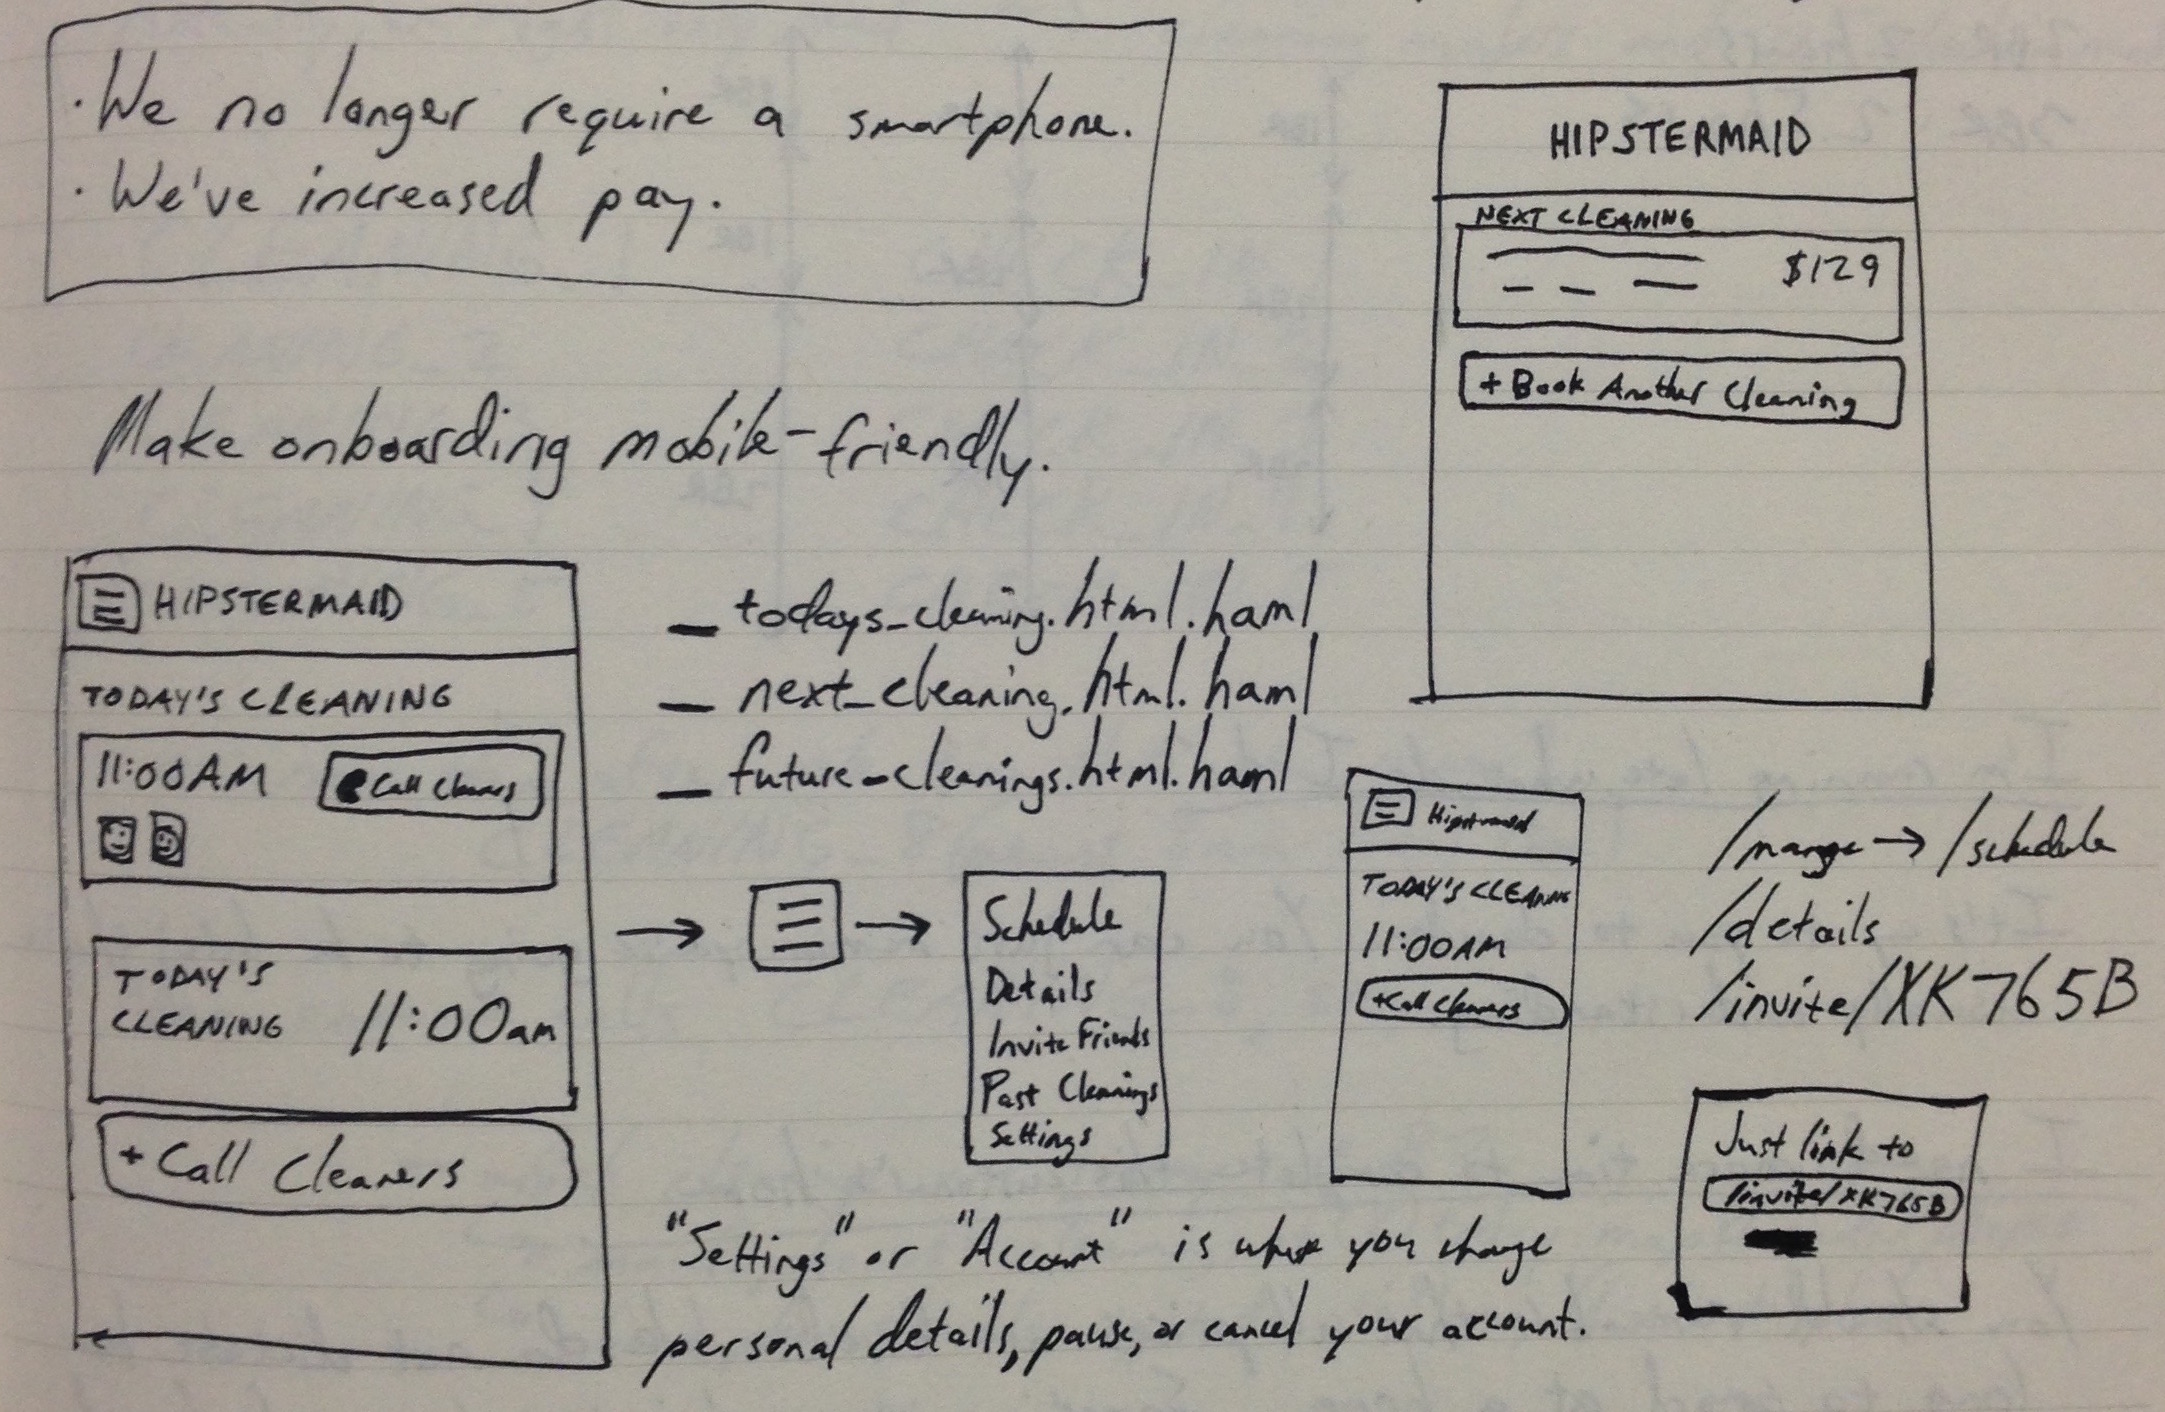 · We no longer require a smartphone.
· We've increased pay.
HIPSTERMAID
NEXT CLEANING
$129
+ Book Another Cleaning
Make onboarding mobile-friendly.
HIPSTERMAID
TODAY'S CLEANING
11:00AM
Call Cleaners
TODAY'S
CLEANING
11:00am
+ Call Cleaners
_ todays_cleaning.html.haml
_ next_cleaning.html.haml
_ future_cleanings.html.haml
→ →
Schedule
Details
Invite Friends
Past Cleanings
Settings
Hipstermaid
TODAY'S CLEANING
11:00AM
+Call Cleaners
→ /schedule
/details
/invite/XK765B
Just link to
/invite/XK765B
"Settings" or "Account" is where you change
personal details, pause, or cancel your account.